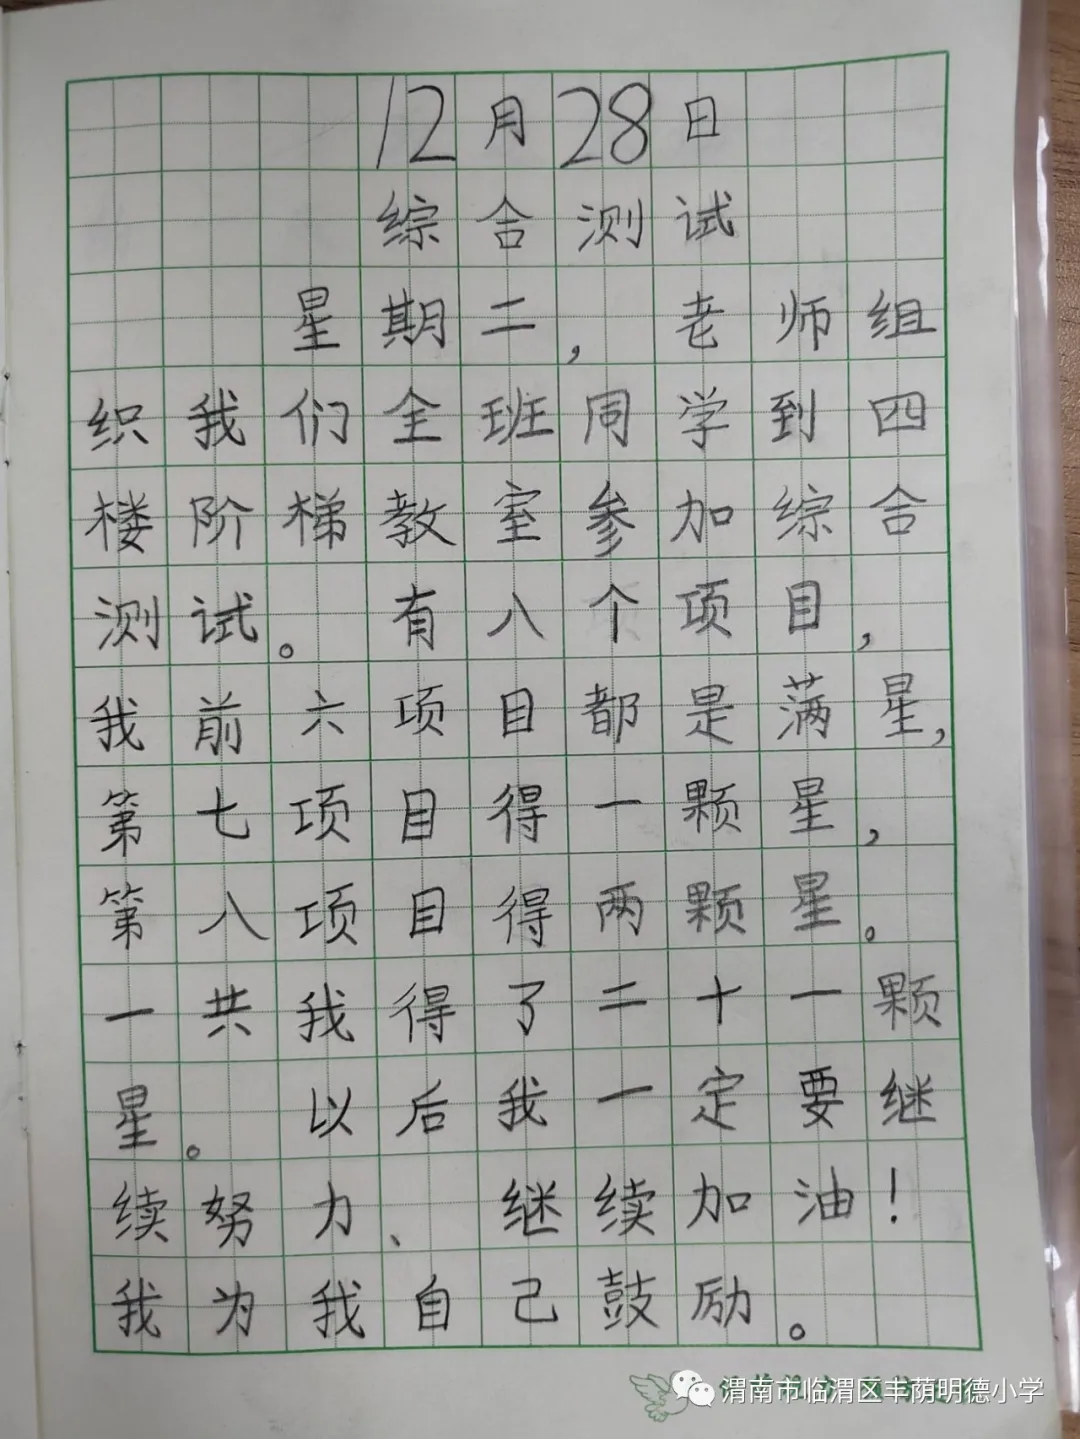 12月28日
综合测试
星期二,老师组
织我们全班同学到四
楼阶梯教室参加综合
测试。有八个项目,
我前六项目都是满星,
第七项目得一颗星,
第八项目得两颗星。
一共我得了二十一颗
星。以后我一定要继
续努力、继续加油!
我为我自己鼓励。
渭南市临渭区丰荫明德小学